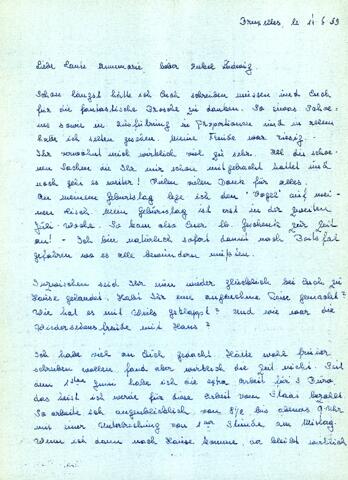 Bruxelles, le 11 6 59
Liebe Tante Annemarie lieber Onkel Ludwig,
Schon längst hätte ich Euch schreiben müssen und Euch
für die fantastische Brosche zu danken. So etwas Schoe-
nes sowie in Ausführung in Proportionen und in allem
habe ich selten gesehen. Meine Freude war riesig.
Ihr verwöhnt mich wirklich viel zu sehr. All die schoe-
nen Sachen die Ihr mir schon mitgebracht hattet und
noch geht es weiter! Vielen vielen Dank für alles.
An meinem Geburtstag lege ich den "Vogel" auf mei-
nen Tisch. Mein Geburtstag ist erst in der zweiten
Juli-Woche. So kam also Euer lb. Geschenk zur Zeit
an! - Ich bin natürlich sofort damit nach
gefahren wo es alle bewundern mußten.
Inzwischen seid Ihr nun wieder glücklich bei Euch zu
Hause gelandet. Habt Ihr eine angenehme Reise gemacht?
Wie hat es mit geklappt? Und wie war die
Wiedersehensfreude mit Hans?
Ich habe viel an Dich gedacht. Hätte wohl früher
schreiben wollen fand aber wirklich die Zeit nicht. Seit
dem 1sten Juni habe ich die extra Arbeit für's Büro
das heist ich werde für diese Arbeit vom Staat bezahlt.
So arbeite ich augenblicklich von 8 1/2 bis abends 9 Uhr
mit einer Unterbrechung von 1ner Stunde am Mittag.
Wenn ich dann nach Hause komme, da bleibt wirklich